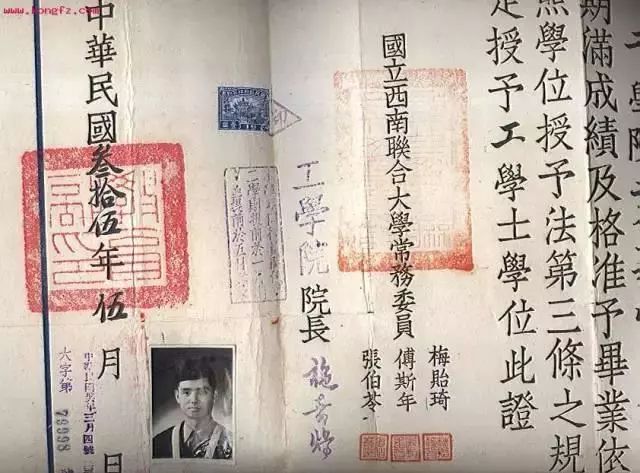 期滿成績及格准予畢業依
照學位授予法第三條之規
定授予工學士學位此證
國立西南聯合大學常務委員
梅貽琦
傅斯年
張伯苓
工學院院長 施嘉煬
中華民國叁拾伍年伍月 日
字第79998
www.kongfz.com